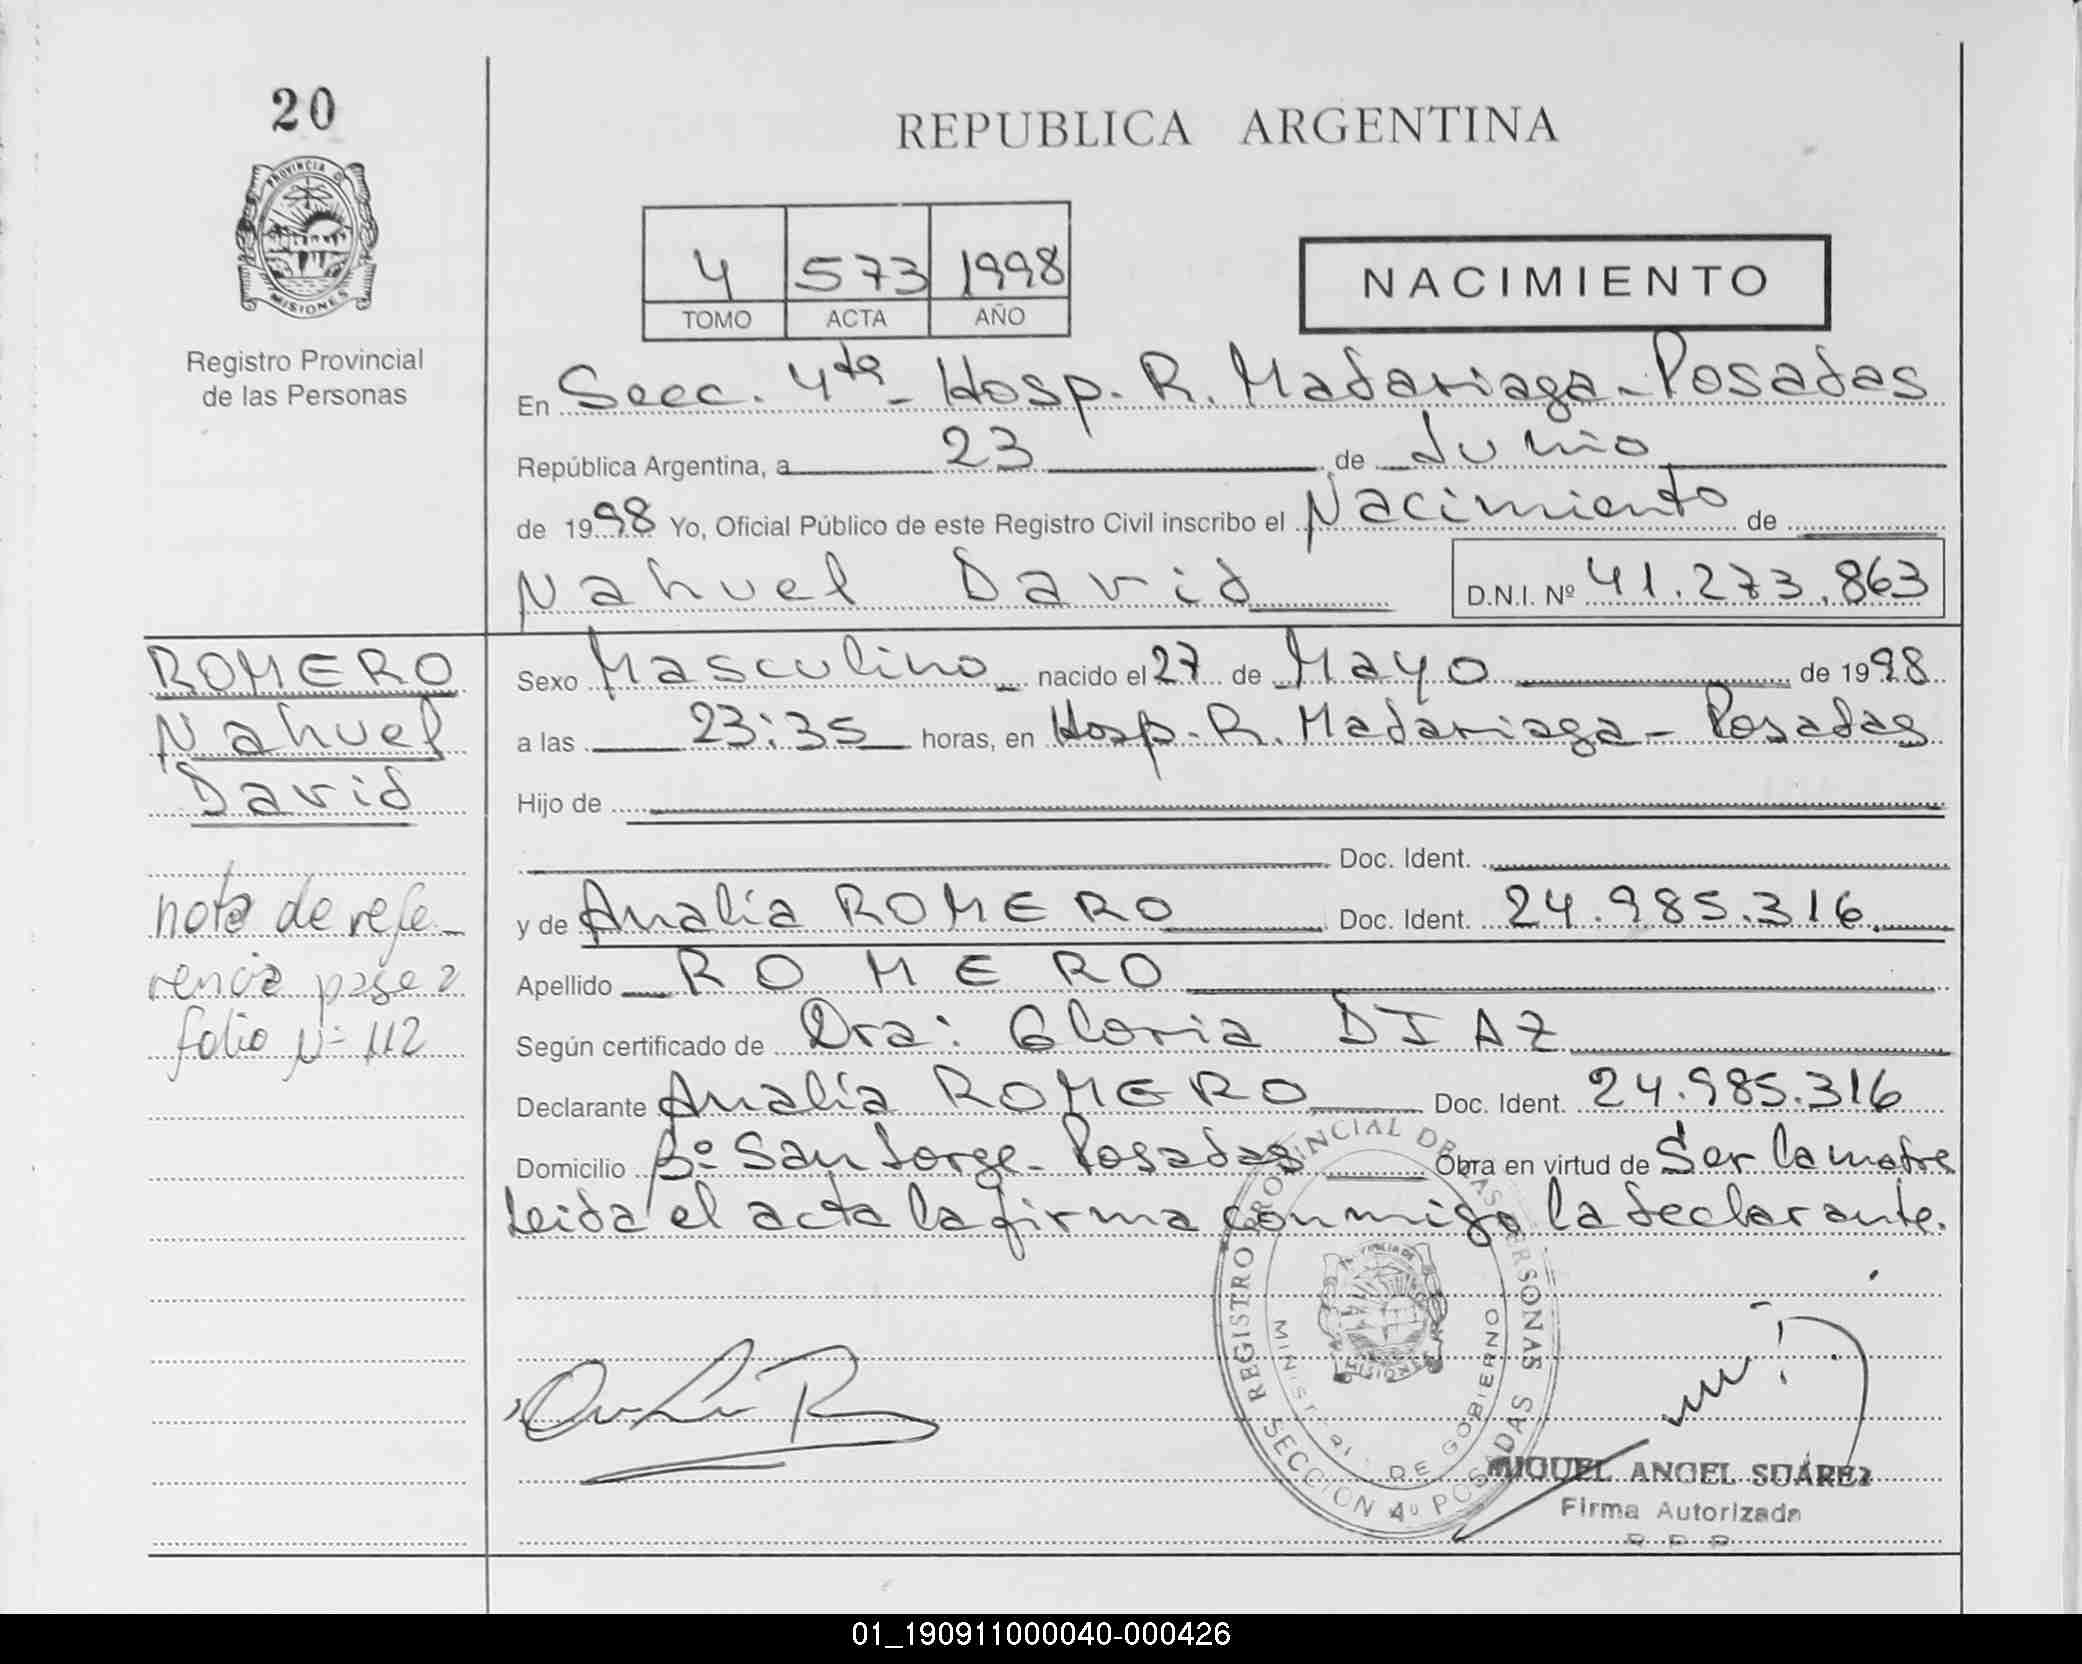 20
PROVINCIA D
MISIONES
Registro Provincial
de las Personas
REPUBLICA ARGENTINA
4 573 1998
TOMO ACTA AÑO
NACIMIENTO
En Secc. 4ta - Hosp. R. Madariaga - Posadas
República Argentina, a 23 de Junio
de 1998 Yo, Oficial Público de este Registro Civil inscribo el Nacimiento de
Nahuel David D.N.I. Nº 41.273.863
ROMERO
Nahuel
David
nota de refe-
rencia pase a
folio Nº 112
Sexo Masculino nacido el 27 de Mayo de 1998
a las 23:35 horas, en Hosp. R. Madariaga - Posadas
Hijo de
Doc. Ident.
y de Analía ROMERO Doc. Ident. 24.985.316
Apellido ROMERO
Según certificado de Dra: Gloria DIAZ
Declarante Analía ROMERO Doc. Ident. 24.985.316
Domicilio Bº San Jorge - Posadas Obra en virtud de Ser la madre
Leida el acta la firma conmigo la declarante.
REGISTRO PROVINCIAL DE LAS PERSONAS
SECCION 4º POSADAS
MINISTERIO DE GOBIERNO
MISIONES
MIGUEL ANGEL SUÁREZ
Firma Autorizada
R. P. P.
01_190911000040-000426